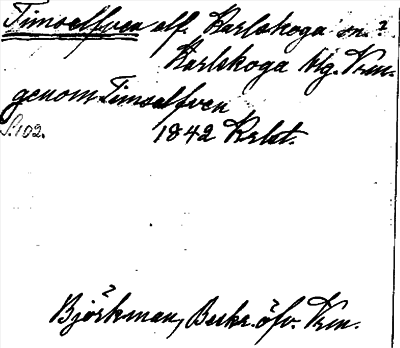 Timselfven elf. Karlskoga sn.?
Karlskoga blg. Vrm.
genom Timselfven
S. 102. 1842 Krlst.
Björkman, Beskr. öfv. Vrm.